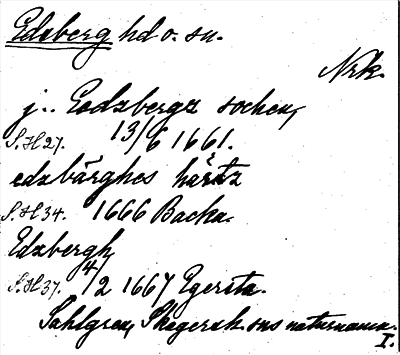 Edsberg hd o. sn.
Nrk.
j.. Eedzbergz sochen,
S.H 27. 13/6 1661.
edzbärghes häretz
S.H 34. 1666 Backa.
Edzbergh,
S.H 37. 4/2 1667 Egersta.
Sahlgren, Skagersh. sns naturnamn.
I.